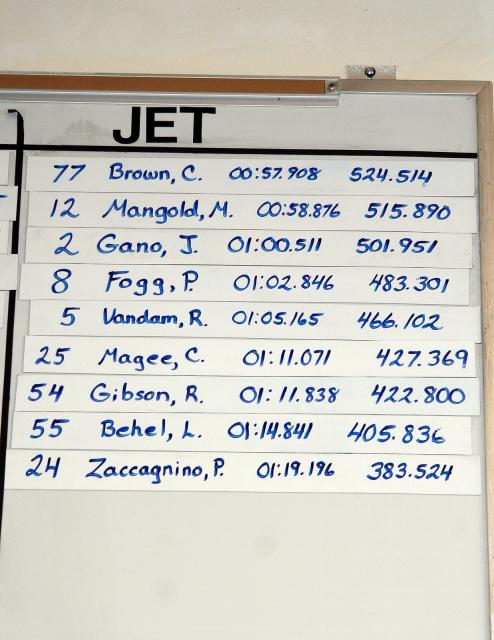 JET
77 Brown, C. 00:57.908 524.514
12 Mangold, M. 00:58.876 515.890
2 Gano, J. 01:00.511 501.951
8 Fogg, P. 01:02.846 483.301
5 Vandam, R. 01:05.165 466.102
25 Magee, C. 01:11.071 427.369
54 Gibson, R. 01:11.838 422.800
55 Behel, L. 01:14.841 405.836
24 Zaccagnino, P. 01:19.196 383.524